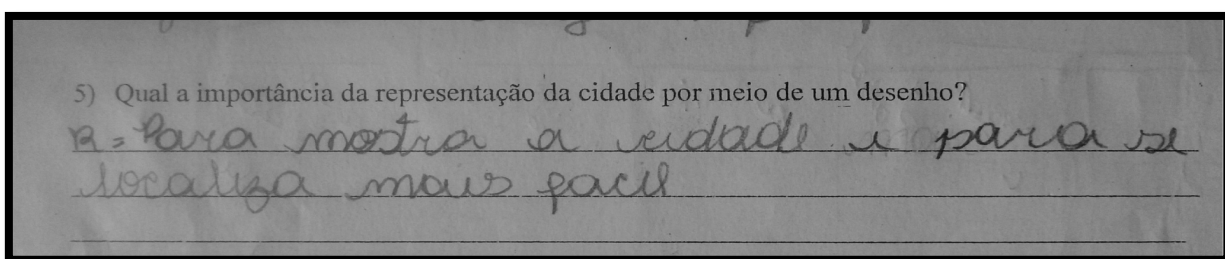 5) Qual a importância da representação da cidade por meio de um desenho?
R = Para mostra a cidade e para se
localiza mais facil